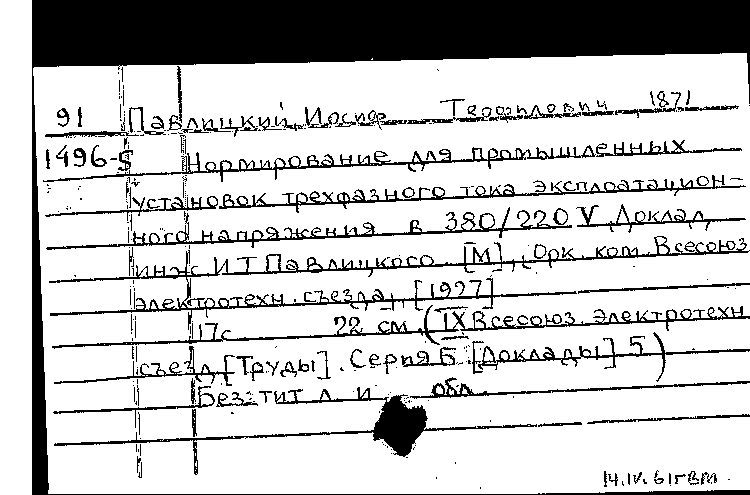 91 Павлицкий, Иосиф Теофилович, 1871
1496-5 Нормирование для промышленных
установок трехфазного тока эксплоатацион-
ного напряжения в 380/220 V, Доклад,
инж И Т Павлицкого. [М], Орк. ком. Всесоюз
электротехн. съезда, [1927]
17с 22 см (IX Всесоюз. электротехн
съезд, [Труды]. Серия Б [Доклады] 5)
Без тит л. и обл.
14.IV.61г ВМ